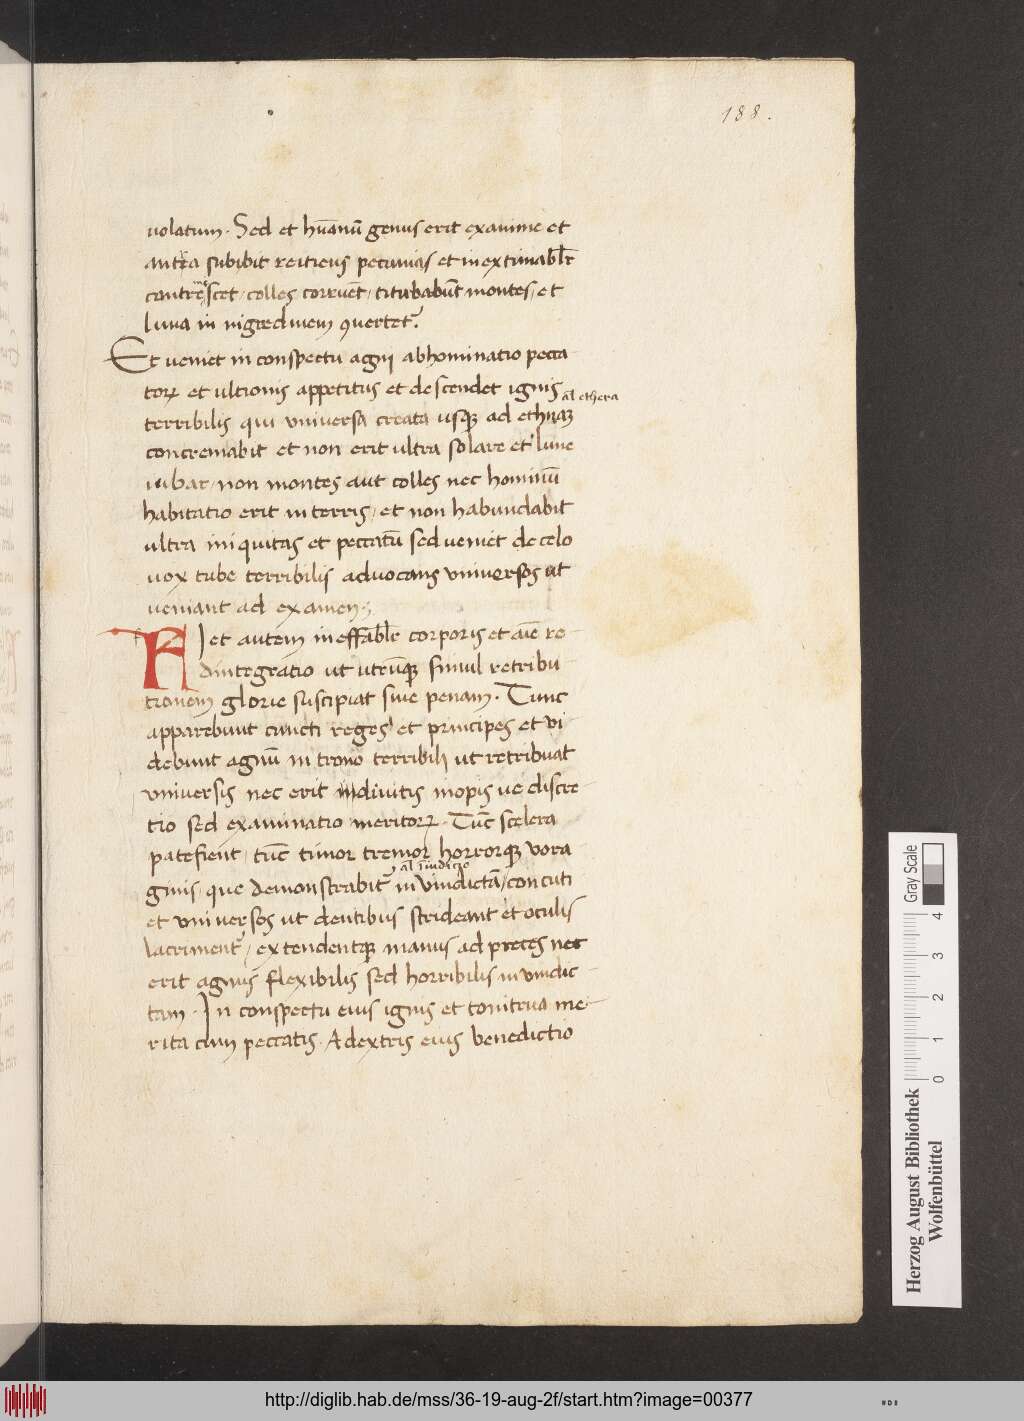 188.
uolatum. Sed et hūanū genus erit exanime et
antra subibit reitiens pecunias et inextimabłr
contremescet, colles corruēt, titubabūt montes, et
luna in nigredinem ꝯuertetᷣ.
Et ueniet in conspectu agni abhominatio pecca
toꝝ et ultionis appetitus et descendet ignis
ał ethera
terribilis qui uniuersa creata usqꝫ ad ethraꝫ
concremabit et non erit ultra solare et lune
iubar, non montes aut colles nec hominū
habitatio erit in terris, et non habundabit
ultra iniquitas et peccatū sed ueniet de celo
uox tube terribilis aduocans uniuersos ut
ueniant ad examen;
Fiet autem ineffabłr corporis et aīe re
dintegratio ut utrūqꝫ simul retribu
tionem glorie suscipiat siue penam. Tunc
apparebunt cuncti reges et principes et ui
debunt agnū in trono terribili ut retribuat
uniuersis nec erit diuitis inopis ue discre
tio sed examinatio meritoꝝ. Tūc scelera
patefient, tūc timor tremor horrorqꝫ uora
ał iuditio
ginis, que demonstrabitᷣ in uindictā, concuti
et uniuersos ut dentibus strideant et oculis
lacrimentᷣ, extendentqꝫ manus ad preces nec
erit agnus flexibilis sed horribilis in uindic
tam. In conspectu eius ignis et tonitrua me
rita cum peccatis. A dextris eius benedictio
Herzog August Bibliothek
Wolfenbüttel
Gray Scale
0 1 2 3 4
http://diglib.hab.de/mss/36-19-aug-2f/start.htm?image=00377